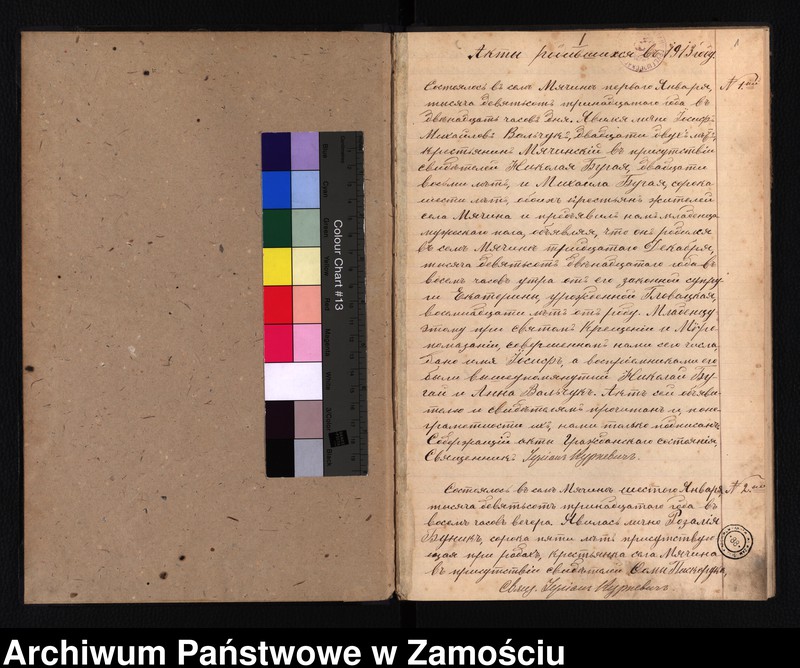 1
Акты родившихся въ 1913 году.
№ 1ый
Состоялось въ селѣ Мячинѣ перваго Января,
тысяча девятьсотъ тринадцатаго года въ
двѣнадцать часовъ дня. Явился лично Іосифъ
Михайловъ Вальчукъ, двадцати двухъ лѣтъ,
крестьянинъ Мячинскій въ присутствіи
свидѣтелей Николая Бугая, двадцати
восьми лѣтъ, и Михаила Бугая, сорока
шести лѣтъ, обоихъ крестьянъ жителей
села Мячина и предъявилъ намъ младенца
мужескаго пола, объявляя, что онъ родился
въ селѣ Мячинѣ тридцатаго Декабря,
тысяча девятьсотъ двѣнадцатаго года въ
восемь часовъ утра отъ его законной супру-
ги Екатерины, урожденной Гловацкая,
восемнадцати лѣтъ отъ роду. Младенцу
этому при святомъ Крещеніи и Миро-
помазаніи, совершенномъ нами сего числа,
дано имя Іосифъ, а воспріемниками его
были вышеупомянутый Николай Бу-
гай и Анна Вальчукъ. Актъ сей объяви-
телю и свидѣтелямъ прочитанъ и, по не-
грамотности ихъ, нами только подписанъ.
Содержащій акты Гражданскаго состоянія,
Священникъ
№ 2ой
Состоялось въ селѣ Мячинѣ шестого Января,
тысяча девятьсотъ тринадцатаго года въ
восемь часовъ вечера. Явилась лично Розалія
сорока пяти лѣтъ присутствую-
щая при родахъ, крестьянка села Мячина
въ присутствіи свидѣтелей Семы
Свящ.
Colour Chart #13
Blue
Cyan
Green
Yellow
Red
Magenta
White
3/Color
Black
Archiwum Państwowe w Zamościu